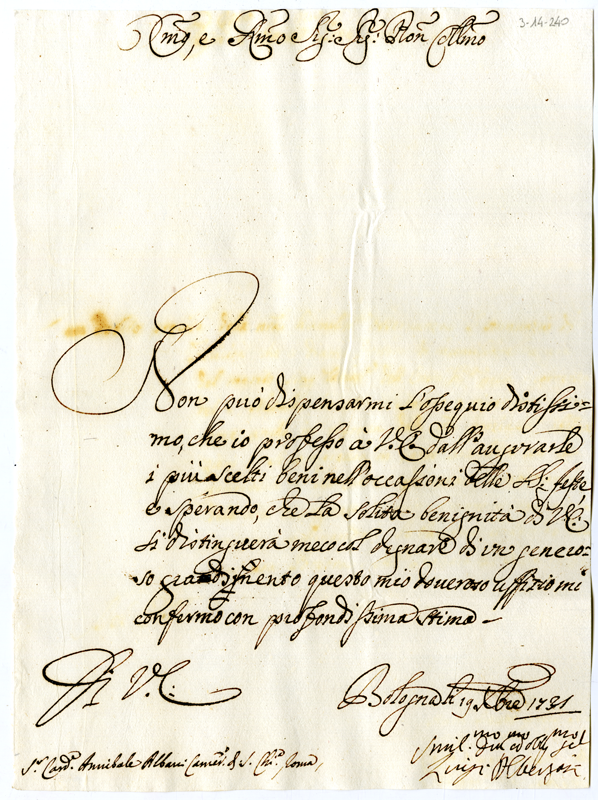 3-14-240
Em̃o, e Rm̃o Sig: Sig: Pron̄ Coll̃mo
Non può dispensarmi l'ossequio distissi=
mo, che io professo à V.E. dall'augurarle
i più scelti beni nell'occasioni delle SS: feste
e sperando, che la solita benignità di V.E.
si distinguerà meco col degnare di un genero=
so gradimento questo mio doveroso uffizio mi
confermo con profondissima stima -
Di V.E:
Bologna li 19 Xbre 1731
Sr. Card. Annibale Albani Camer. di S. Chª. Roma,
Umil.mo Dev.mo ed obblg.mo
Luigi